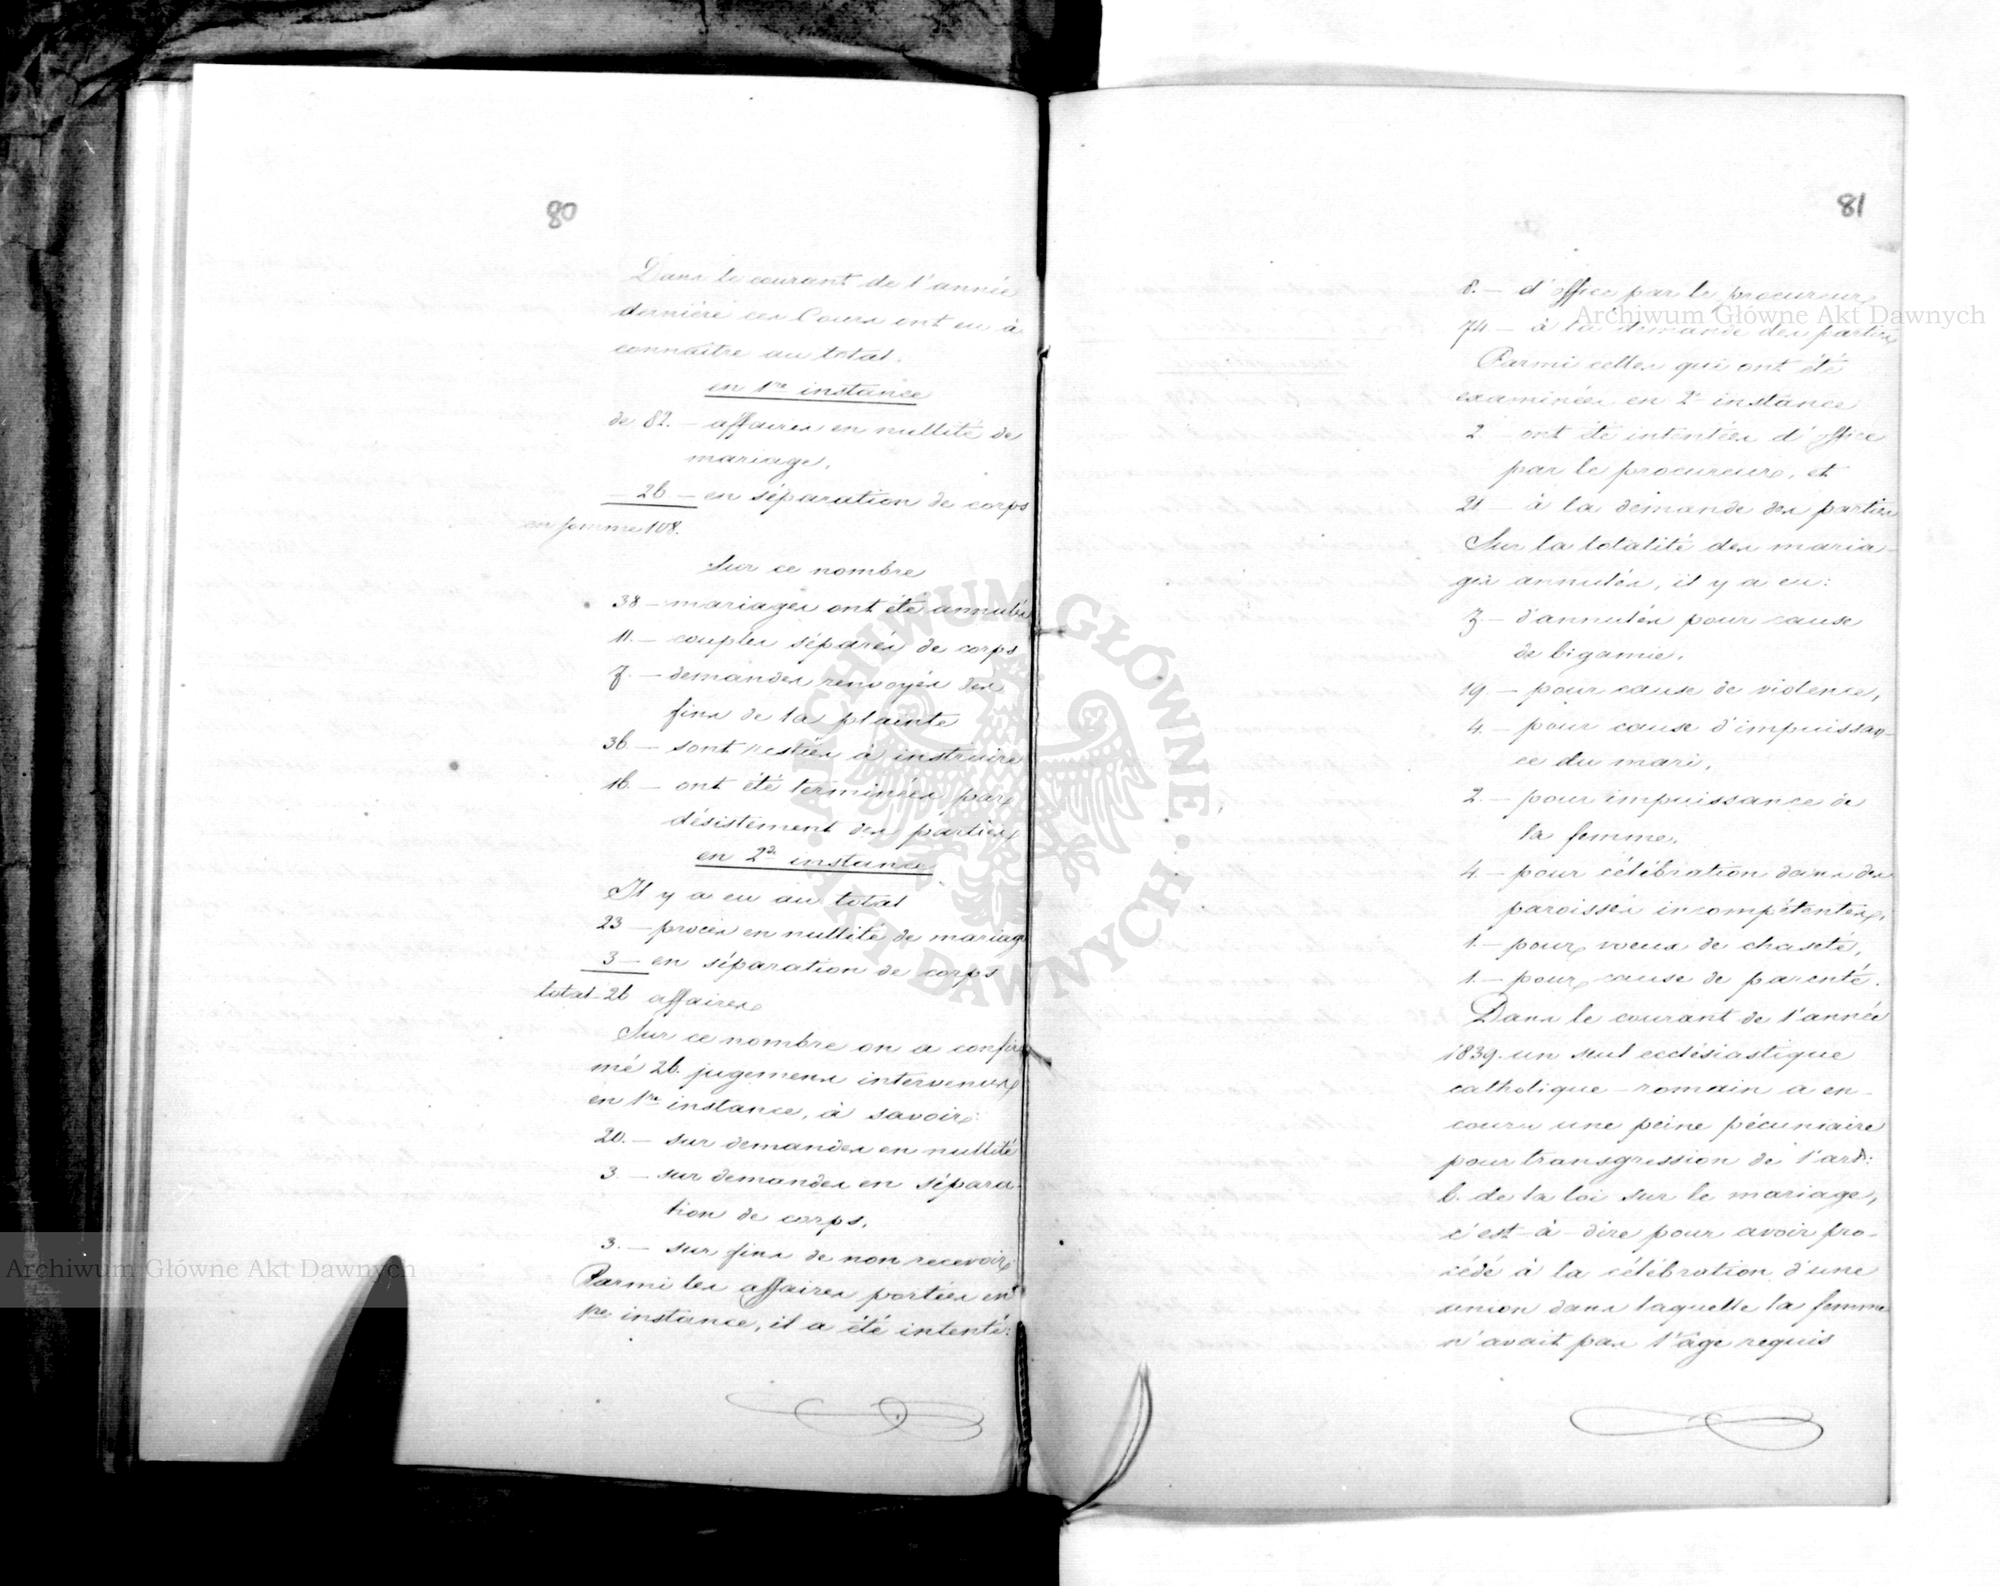 80
Dans le courant de l'année
dernière ces Cours ont eu à
connaître au total.
en 1re instance
de 82. – affaires en nullité de
mariage,
– 26 – en séparation de corps
en somme 108.
Sur ce nombre
38 – mariages ont été annulés
11. – couples séparés de corps
7. – demandes renvoyées des
fins de la plainte
36 – sont restées à instruire
16. – ont été terminées par
désistement des parties
en 2de instance
Il y a eu au total
23 – procès en nullité de mariage
3 – en séparation de corps
total – 26 affaires
Sur ce nombre on a confir
mé 26. jugemens intervenus
en 1re instance, à savoir:
20. – sur demandes en nullité
3. – sur demandes en sépara-
tion de corps.
3. – sur fins de non recevoir
Parmi les affaires portées en
1re instance, il a été intenté:
81
8. – d'office par le procureur
74 – à la demande des parties
Parmi celles qui ont été
examinées en 2e instance
2 – ont été intentées d'office
par le procureur, et
21 – à la demande des parties
Sur la totalité des maria-
ges annulés, il y a eu:
7 – d'annulés pour cause
de bigamie,
19. – pour cause de violence,
4. – pour cause d'impuissan-
ce du mari,
2. – pour impuissance de
la femme,
4. – pour célébration dans des
paroisses incompétentes,
1. – pour voeux de chasteté,
1. – pour cause de parenté.
Dans le courant de l'année
1839. un seul ecclésiastique
catholique-romain a en-
couru une peine pécuniaire
pour transgression de l'art:
6. de la loi sur le mariage,
c'est-à-dire pour avoir pro-
cédé à la célébration d'une
union dans laquelle la femme
n'avait pas l'âge requis
Archiwum Główne Akt Dawnych
Archiwum Główne Akt Dawnych
ARCHIWUM GŁÓWNE · AKT DAWNYCH ·